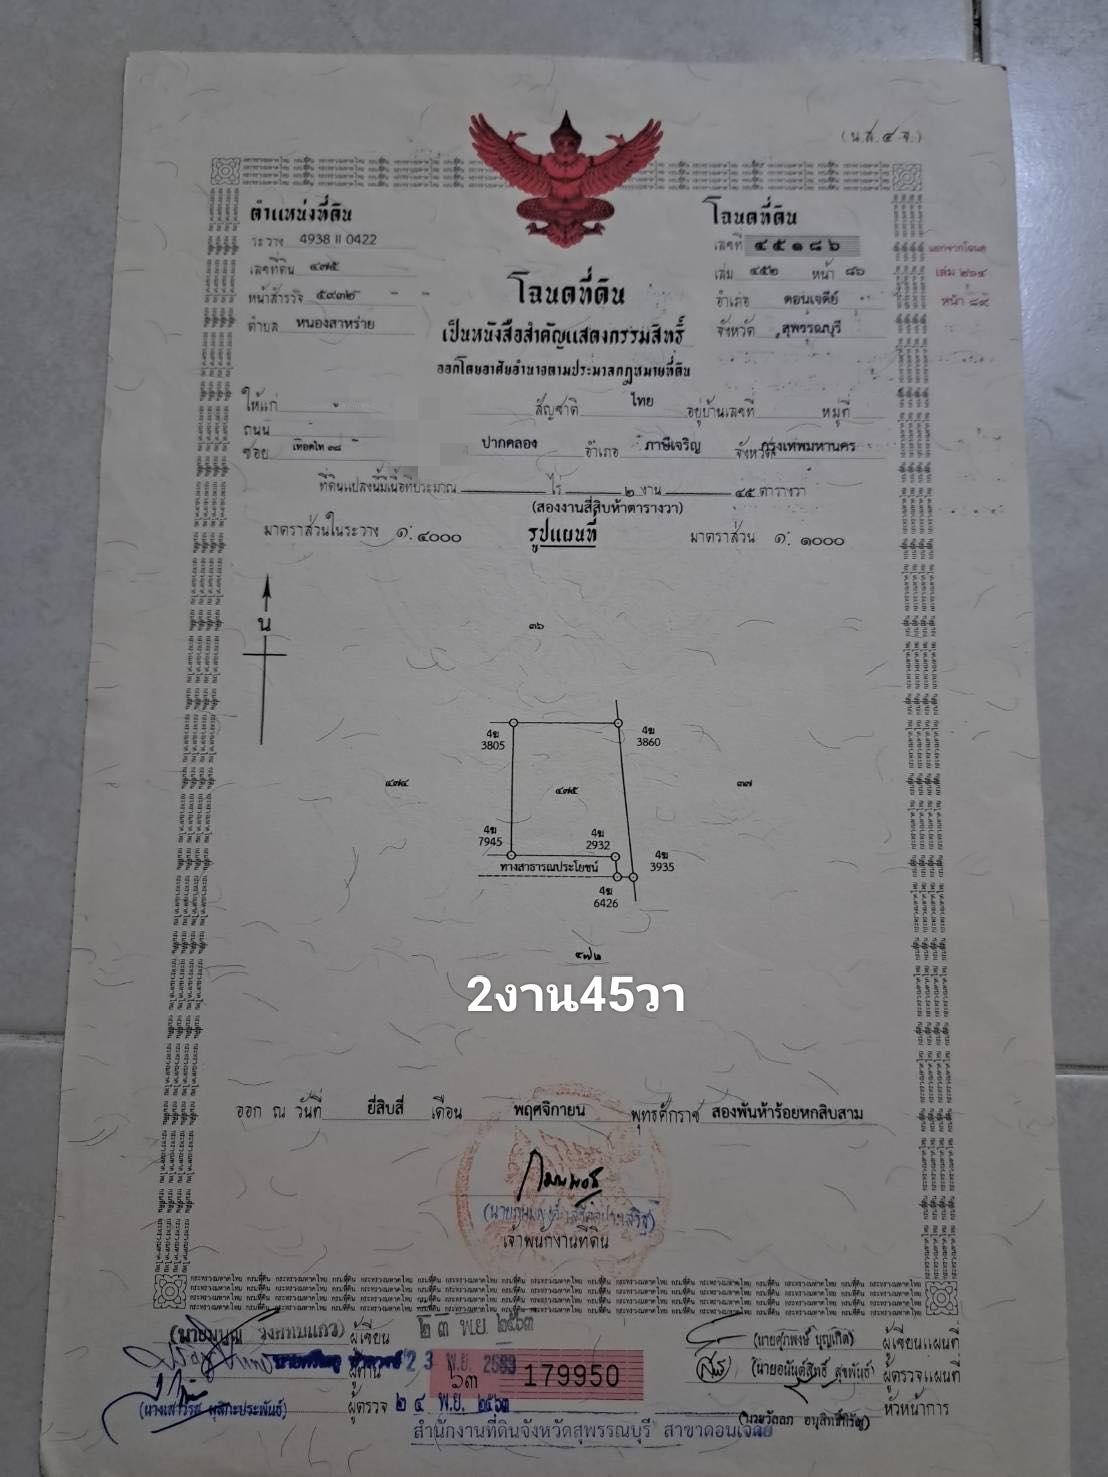 (น.ส.๔ จ.)
ตำแหน่งที่ดิน
ระวาง 4938 II 0422
เลขที่ดิน ๔๗๕
หน้าสำรวจ ๕๙๓๒
ตำบล หนองสาหร่าย
โฉนดที่ดิน
เลขที่ ๔๕๑๘๖
เล่ม ๔๕๒ หน้า ๘๖
อำเภอ ดอนเจดีย์
จังหวัด สุพรรณบุรี
แยกจากโฉนด
เล่ม ๒๖๔
หน้า ๘๙
โฉนดที่ดิน
เป็นหนังสือสำคัญแสดงกรรมสิทธิ์
ออกโดยอาศัยอำนาจตามประมวลกฎหมายที่ดิน
ให้แก่ สัญชาติ ไทย อยู่บ้านเลขที่ หมู่ที่
ถนน
ซอย เทอดไท ๓๘ ปากคลอง อำเภอ ภาษีเจริญ จังหวัด กรุงเทพมหานคร
ที่ดินแปลงนี้มีเนื้อที่ประมาณ ไร่ ๒ งาน ๔๕ ตารางวา
(สองงานสี่สิบห้าตารางวา)
มาตราส่วนในระวาง ๑:๔๐๐๐ รูปแผนที่ มาตราส่วน ๑:๑๐๐๐
น
๓๖
4ฆ 3805
4ฆ 3860
๔๗๔
๔๗๕
๓๗
4ฆ 7945
4ฆ 2932
4ฆ 3935
ทางสาธารณประโยชน์
4ฆ 6426
๔๗๒
2งาน45วา
ออก ณ วันที่ ยี่สิบสี่ เดือน พฤศจิกายน พุทธศักราช สองพันห้าร้อยหกสิบสาม
เจ้าพนักงานที่ดิน
ผู้เขียน ๒๓ พ.ย. ๒๕๖๓
(นายศุภพงษ์ บุญเกิด) ผู้เขียนแผนที่
ผู้ทาน 23 พ.ย. 2563
๖๓ 179950
(นายอนันต์สิทธิ์ สุขพันธ์) ผู้ตรวจแผนที่
ผู้ตรวจ ๒๔ พ.ย. ๒๕๖๓
หัวหน้าการ
สำนักงานที่ดินจังหวัดสุพรรณบุรี สาขาดอนเจดีย์